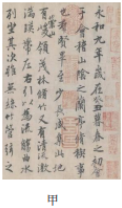 永和九年歲在癸丑暮春之初會
于會稽山陰之蘭亭脩稧事
也群賢畢至少長咸集此地
有崇山峻領茂林脩竹又有清流激
湍暎帶左右引以為流觴曲水
列坐其次雖無絲竹管弦之
甲